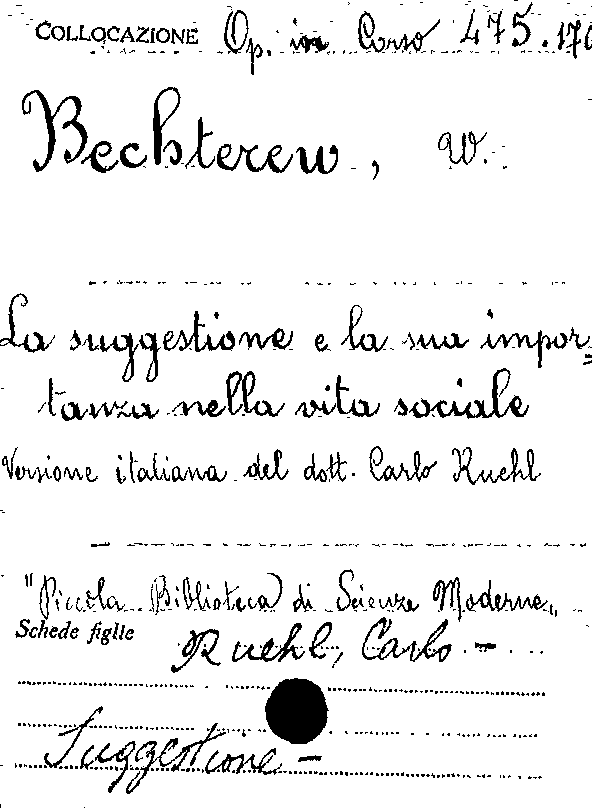 COLLOCAZIONE Op. in Corso 475.170
Bechterew, W.
La suggestione e la sua impor=
tanza nella vita sociale
Versione italiana del dott. Carlo Ruehl
"Piccola Biblioteca di Scienze Moderne„
Schede figlie Ruehl, Carlo -
Suggestione -